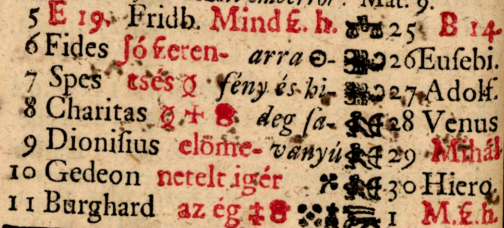 5 E 19. Fridb. Mind ſz. h. 25 B 14.
6 Fides Jó ſzeren- arra ☉- 26 Euſebi.
7 Spes tsés fény és hi- 27 Adolf.
8 Charitas deg ſa- 28 Venus
9 Dioniſius elöme- ványú 29 Mihál
10 Gedeon netelt igér 30 Hiero
11 Burghard az ég 1 M. ſz. h.